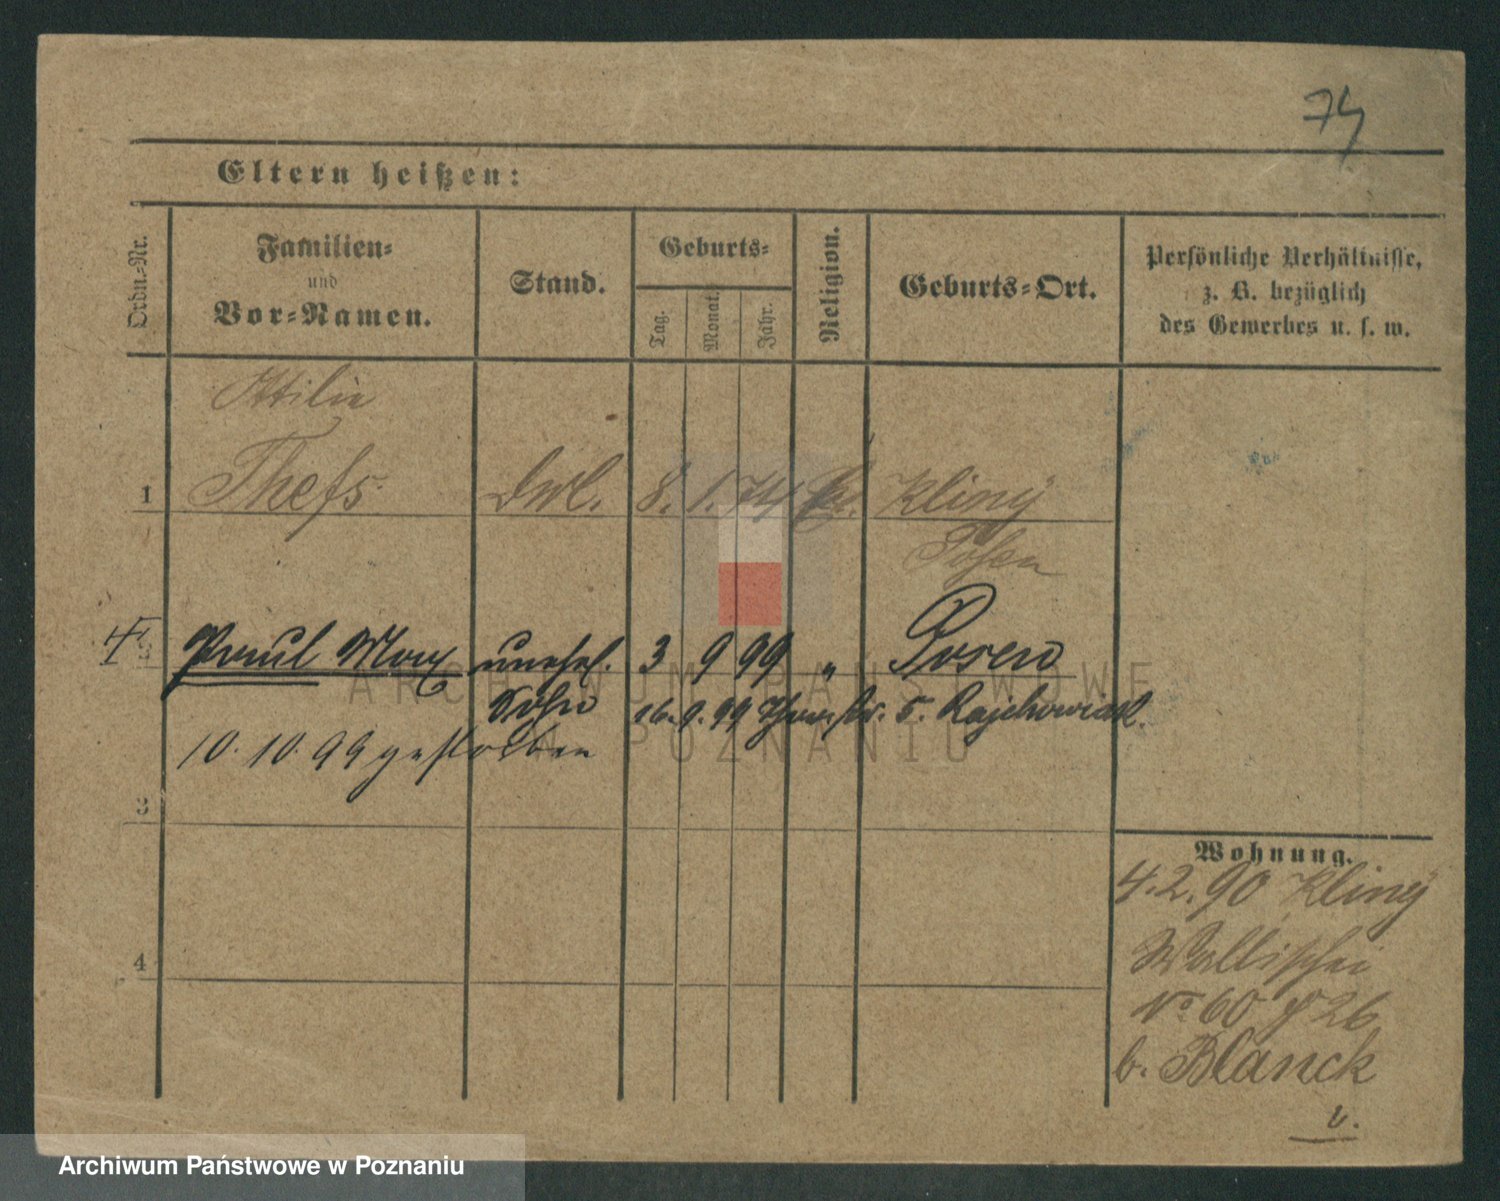 74
Eltern heißen:
Ordn.-Nr.
Familien-
und
Vor-Namen.
Stand.
Geburts-
Tag.
Monat.
Jahr.
Religion.
Geburts-Ort.
Persönliche Verhältnisse,
z. B. bezüglich
des Gewerbes u. s. w.
Ottilie
1 Thefs 8. 1. 74 Kliny
Posen
2 Paul Max unehel. 3 9 99 „ Posen
Sohn 16. 9. 99 str. 5. Rajchowiak.
10. 10. 99 gestorben
3
4
Wohnung.
4. 2. 90 Kliny
Wallischei
No 60 26
b. Blanck
v.
ARCHIWUM PAŃSTWOWE
W POZNANIU
Archiwum Państwowe w Poznaniu